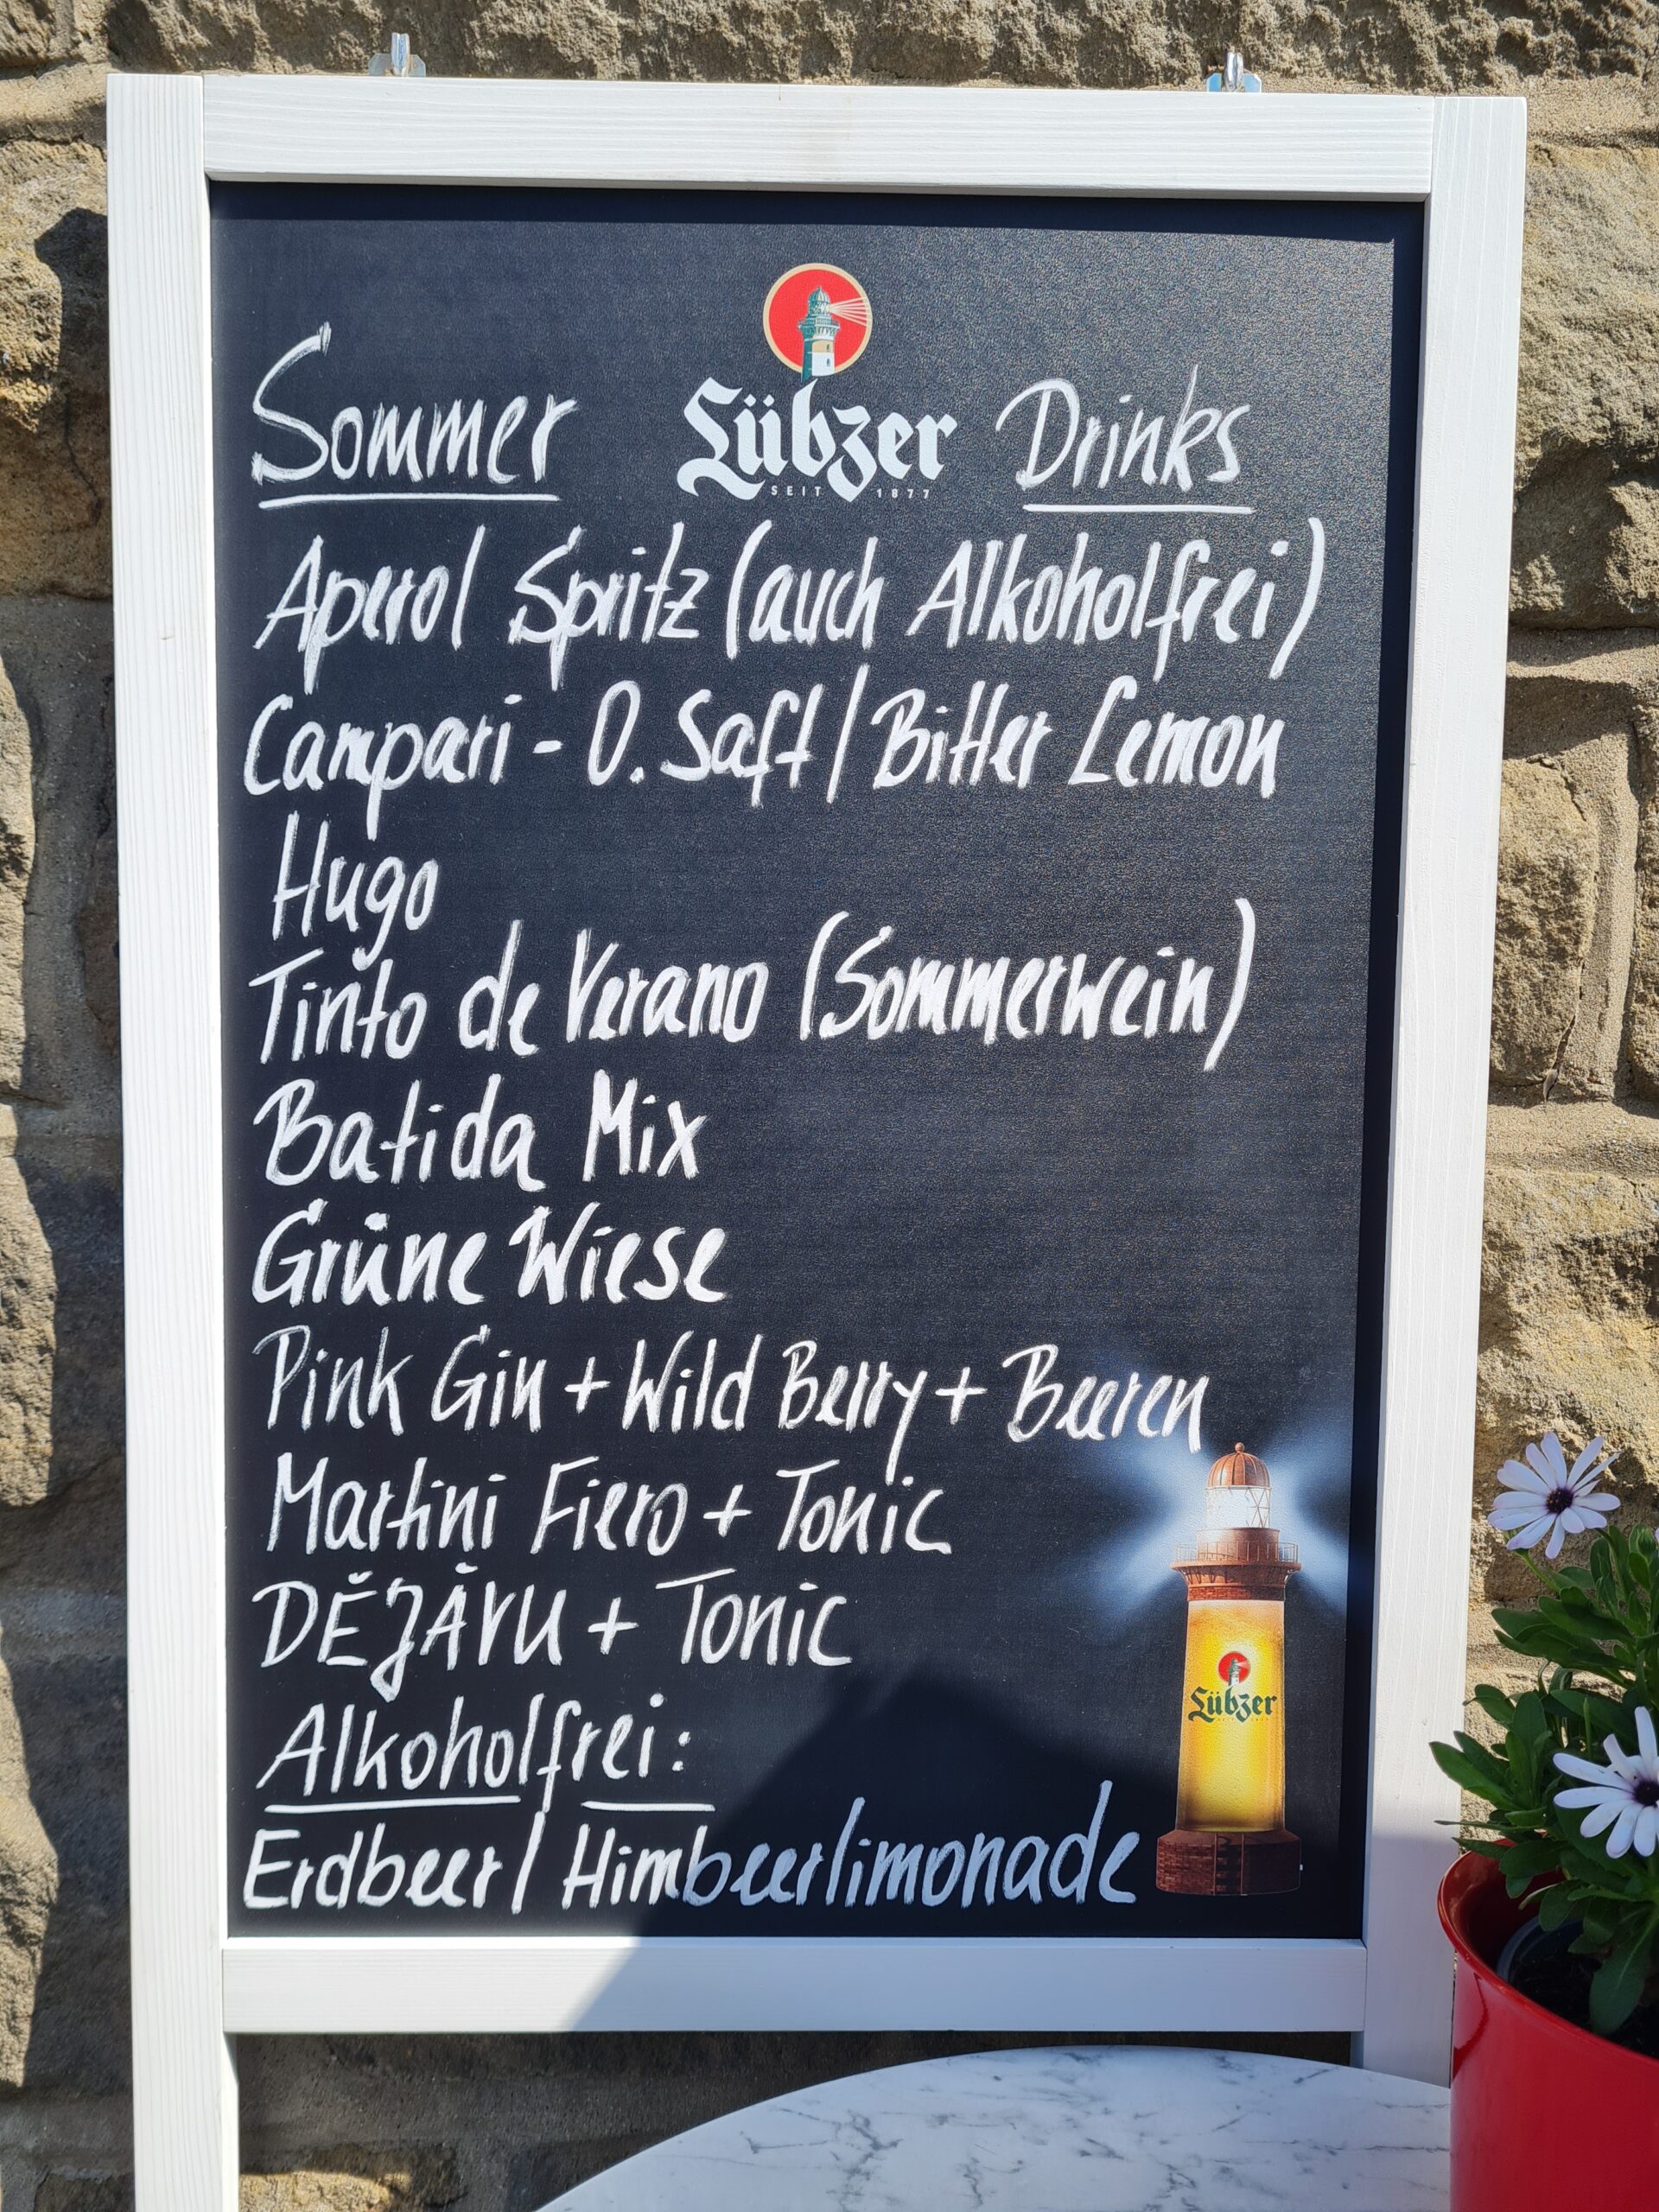 Sommer Lübzer Drinks
SEIT 1877
Aperol Spritz (auch Alkoholfrei)
Campari - O. Saft / Bitter Lemon
Hugo
Tinto de Verano (Sommerwein)
Batida Mix
Grüne Wiese
Pink Gin + Wild Berry + Beeren
Martini Fiero + Tonic
DÉJÀVU + Tonic
Alkoholfrei:
Erdbeer / Himbeerlimonade
Lübzer